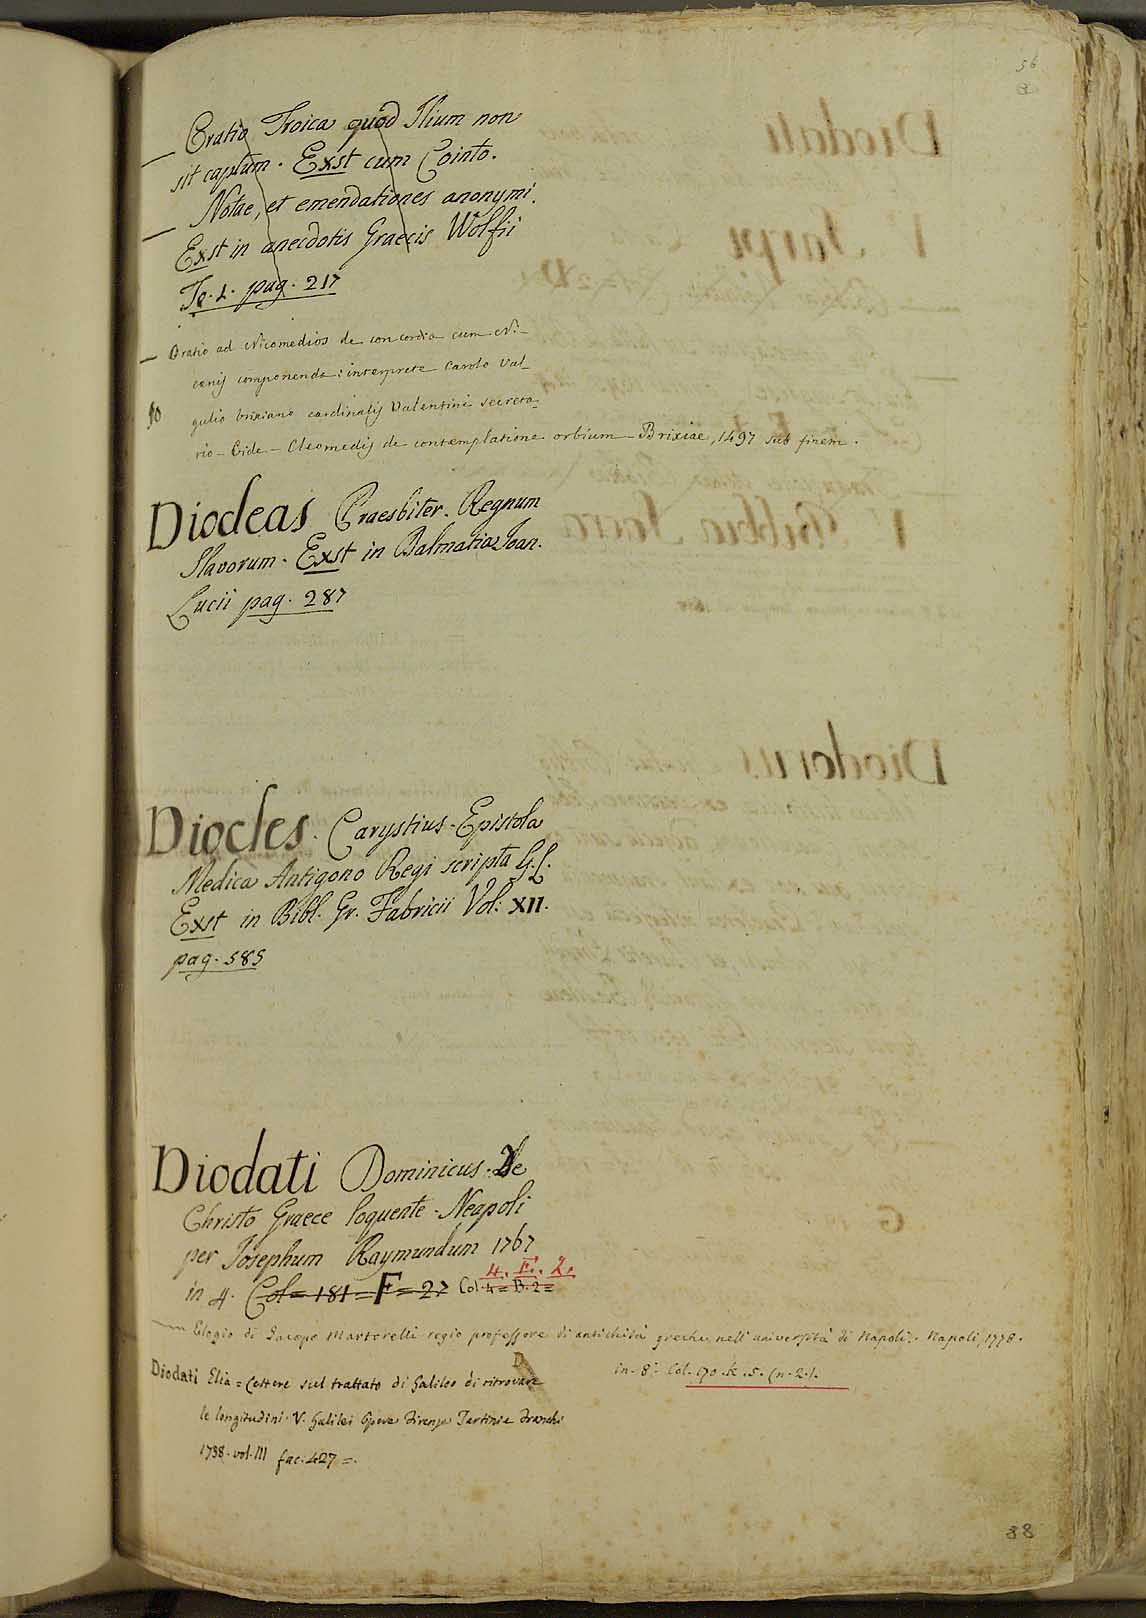 56
Oratio Troica quod Ilium non
sit captum. Exst cum Cointo.
Notae, et emendationes anonymi.
Exst in anecdotis Graecis Wolfii
To. 1. pag. 217
Oratio ad Nicomedios de concordia cum Ni-
cenis componenda: interprete Carolo Val-
gulio brixiano cardinalis Valentini secreta-
rio - Vide - Cleomedis de contemplatione orbium - Brixiae, 1497 sub finem.
Diodeas Praesbiter. Regnum
Slavorum. Exst in Dalmatia Joan.
Lucii pag. 287
Diocles. Carystius - Epistola
Medica Antigono Regi scripta G. L.
Exst in Bibl. Gr. Fabricii Vol. XII.
pag. 585
Diodati Dominicus. De
Christo Graece loquente. Neapoli
per Josephum Raymundum 1767
4. F. 2.
in 4. Col = 181 = F = 27 Col. 4 = B. 2 =
Elogio di Jacopo Martorelli regio professore di antichità greche nell'università di Napoli. Napoli, 1778.
in - 8° - Col. 170. K. 5. (n. 2.).
Diodati Elia = Lettere sul trattato di Galileo di ritrovare
le longitudini. V. Galilei Opere Firenze Tartini e Franchi
1738. vol. III fac. 427 =.
88